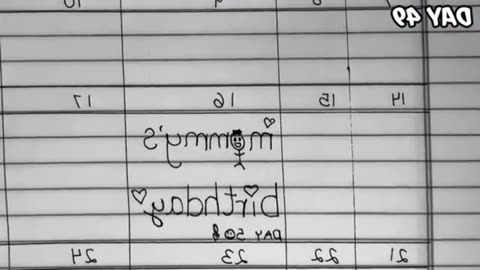 DAY 49
14 15 16 17
mommy's
birthday
DAY 50
21 22 23 24